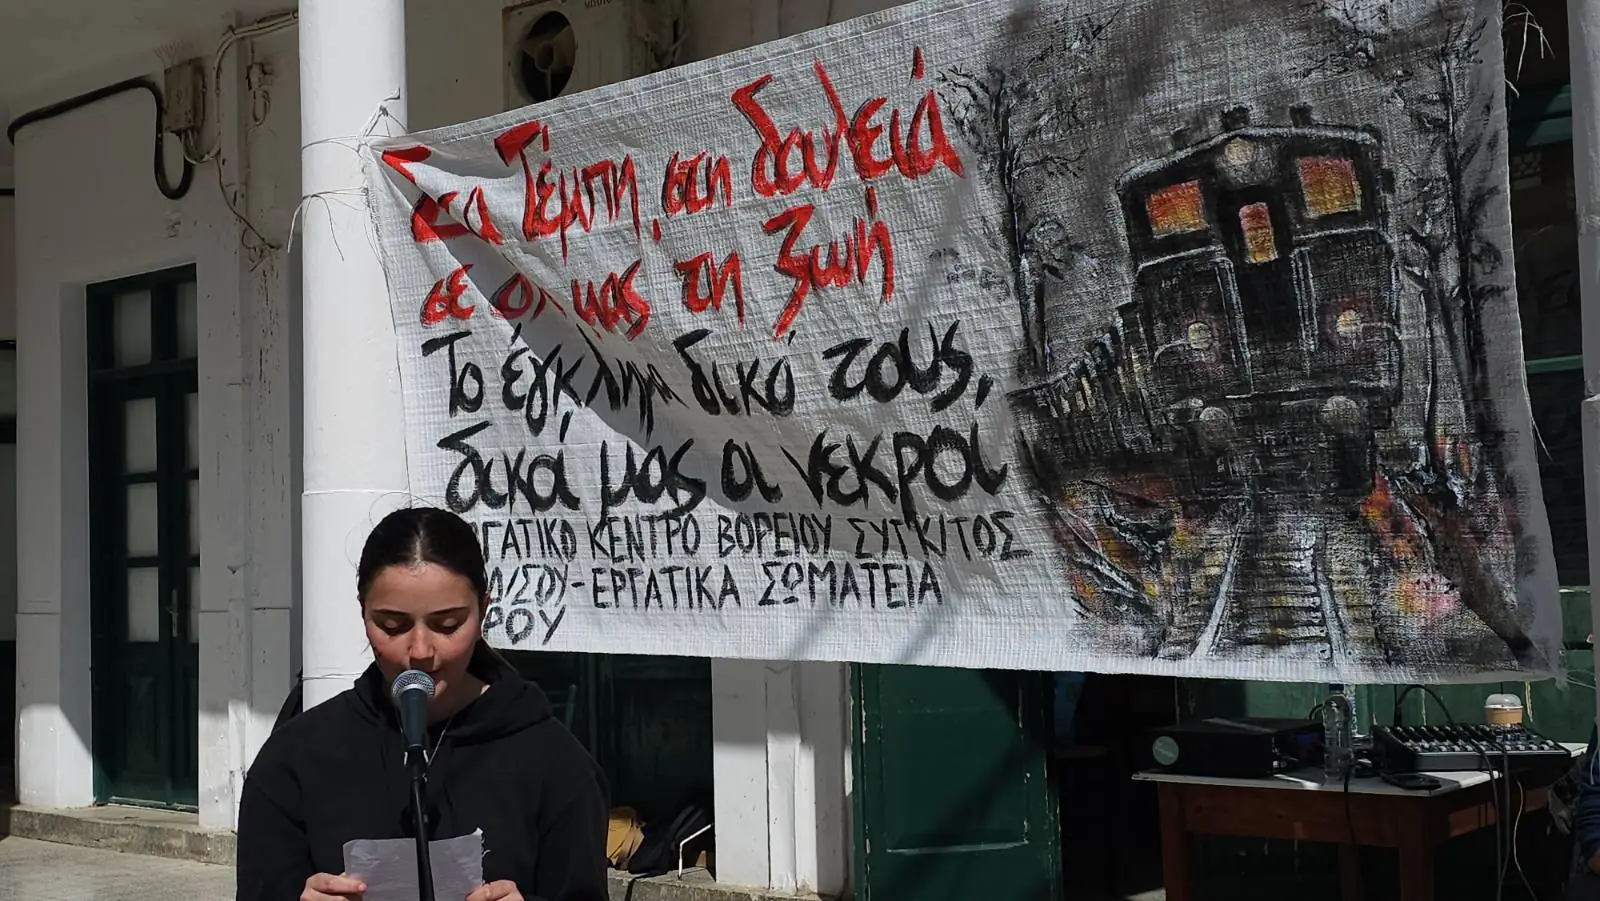 Στα Τέμπη, στη δουλειά
σε όλη μας τη ζωή
Το έγκλημα δικό τους,
δικά μας οι νεκροί
ΓΑΤΙΚΟ ΚΕΝΤΡΟ ΒΟΡΕΙΟΥ ΣΥΓΚ/ΤΟΣ
ΔΩ/ΣΟΥ-ΕΡΓΑΤΙΚΑ ΣΩΜΑΤΕΙΑ
ΡΟΥ